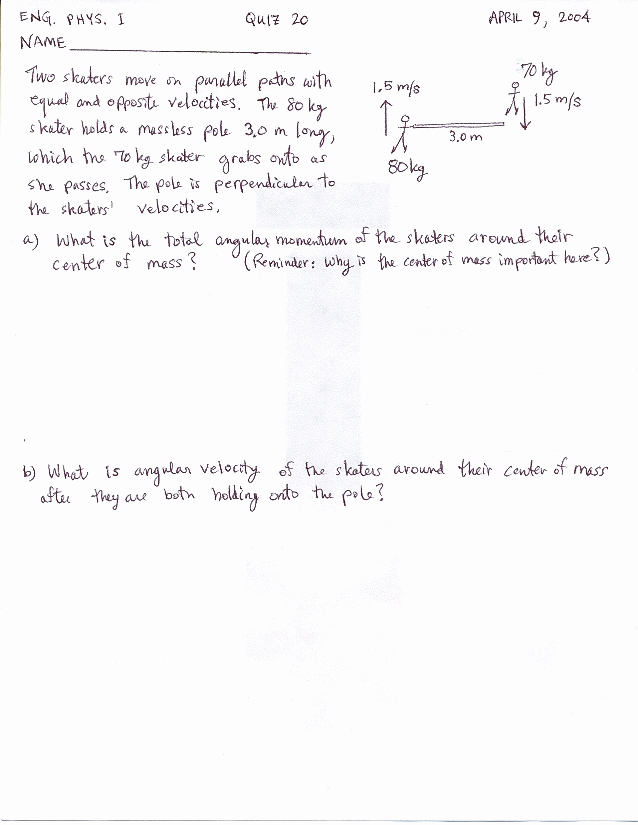 ENG. PHYS. I QUIZ 20 APRIL 9, 2004
NAME
Two skaters move on parallel paths with
equal and opposite velocities. The 80 kg
skater holds a massless pole 3.0 m long,
which the 70 kg skater grabs onto as
she passes. The pole is perpendicular to
the skaters' velocities.
70 kg
1.5 m/s
1.5 m/s
3.0 m
80 kg
a) What is the total angular momentum of the skaters around their
center of mass? (Reminder: Why is the center of mass important here?)
b) What is angular velocity of the skaters around their center of mass
after they are both holding onto the pole?